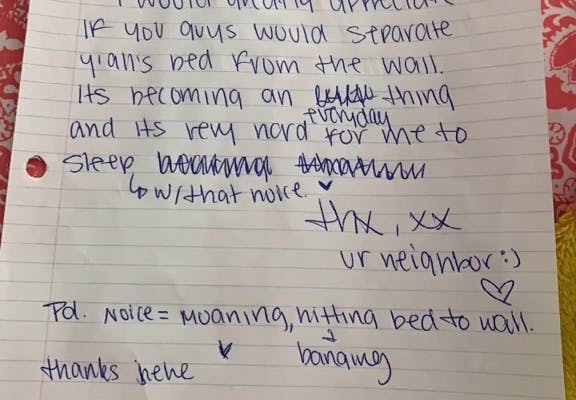 I would greatly appreciate
If you guys would separate
y'all's bed from the wall.
Its becoming an everyday thing
and its very hard for me to
sleep
↳ w/that noise.
thx, xx
ur neighbor :)
♡
Pd. Noice = Moaning, hitting bed to wall.
↓
banging
thanks hehe